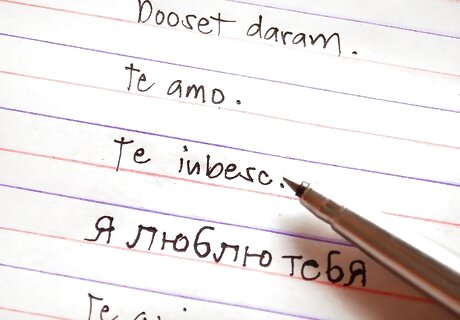 Dooset daram.
Te amo.
Te iubesc.
Я люблю тебя
Te